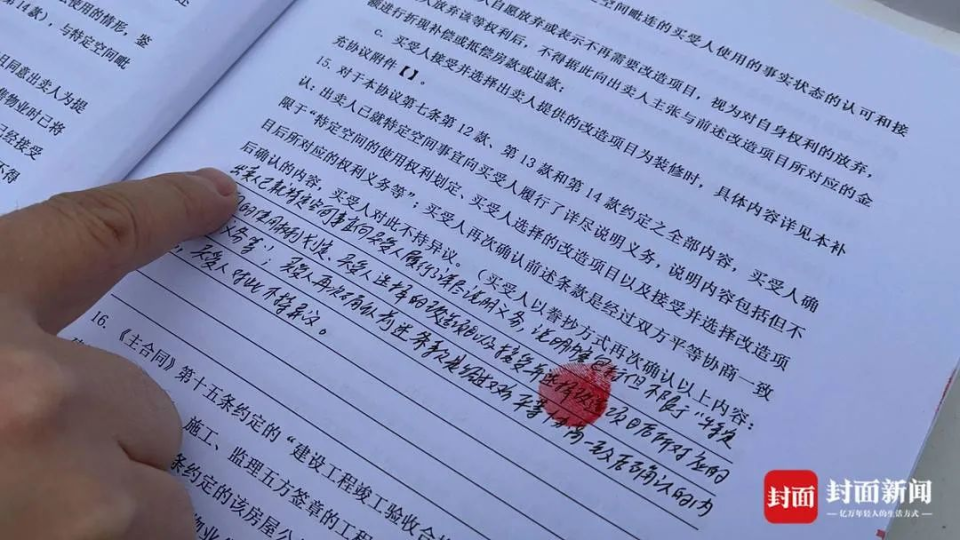 第14款），与特定空间毗
且同意出卖人为提
售物业时已将
已经接受
不得
使用的情形，鉴
空间毗连的买受人使用的事实状态的认可和接
人自愿放弃或表示不再需要改造项目，视为对自身权利的放弃，
放弃该等权利后，不得据此向出卖人主张与前述改造项目所对应的金
额进行折现补偿或抵偿房款或退款；
c. 买受人接受并选择出卖人提供的改造项目为装修时，具体内容详见本补
充协议附件【】。
15. 对于本协议第七条第12款、第13款和第14款约定之全部内容，买受人确
认：出卖人已就特定空间事宜向买受人履行了详尽说明义务，说明内容包括但不
限于“特定空间的使用权利划定、买受人选择的改造项目以及接受并选择改造项
目后所对应的权利义务等”；买受人再次确认前述条款是经过双方平等协商一致
后确认的内容，买受人对此不持异议。（买受人以誊抄方式再次确认以上内容：
出卖人已就特定空间事宜向买受人履行了详尽说明义务，说明内容包括但不限于“特定
空间的使用权利划定、买受人选择的改造项目以及接受并选择改造项目后所对应的
义务等”；买受人再次确认前述条款是经过双方平等协商一致后确认的内
，买受人对此不持异议。
16. 《主合同》第十五条约定的“建设工程竣工验收合
施工、监理五方签章的工程
条约定的该房屋公
封面
封面新闻
亿万年轻人的生活方式